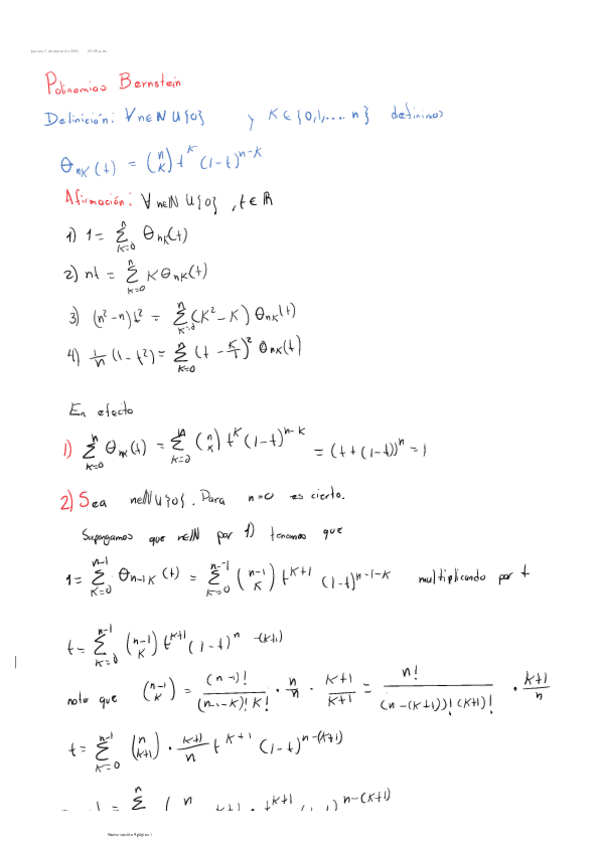 Polinomios Bernstein
Definición: ∀n∈ℕ∪{0} y K∈{0,1,....n} definimos
θnk(t) = (n K) t^K (1-t)^(n-K)
Afirmación: ∀n∈ℕ∪{0}, t∈ℝ
1) 1 = Σ_{K=0}^{n} θnk(t)
2) nt = Σ_{K=0}^{n} K θnk(t)
3) (n²-n)t² = Σ_{K=0}^{n} (K²-K) θnk(t)
4) 1/n (1-t²) = Σ_{K=0}^{n} (t - K/1)² θnk(t)
En efecto
1) Σ_{K=0}^{n} θnk(t) = Σ_{K=0}^{n} (n K) t^K (1-t)^(n-K) = (t+(1-t))^n = 1
2) Sea n∈ℕ∪{0}. Para n=0 es cierto.
Supongamos que n∈ℕ por 1) tenemos que
1 = Σ_{K=0}^{n-1} θn-1K(t) = Σ_{K=0}^{n-1} (n-1 K) t^(K+1) (1-t)^(n-1-K) multiplicando por t
t = Σ_{K=0}^{n-1} (n-1 K) t^(K+1) (1-t)^(n-(K+1))
note que (n-1 K) = (n-1)!/((n-1-K)! K!) · n/n · (K+1)/(K+1) = n!/((n-(K+1))! (K+1)!) · (K+1)/n
t = Σ_{K=0}^{n-1} (n K+1) · (K+1)/n t^(K+1) (1-t)^(n-(K+1))